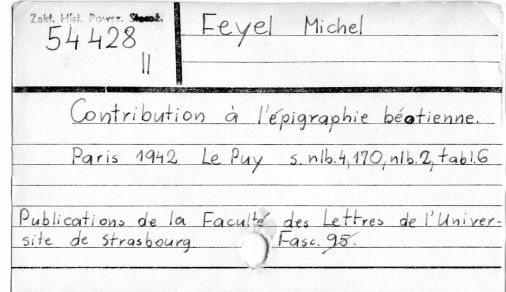 Zakł. Hist. Powsz. Staroż.
54428
II
Feyel Michel
Contribution à l'épigraphie béotienne.
Paris 1942 Le Puy s. nlb.4,170,nlb.2,tabl.6
Publications de la Faculté des Lettres de l'Univer-
site de Strasbourg. Fasc. 95.